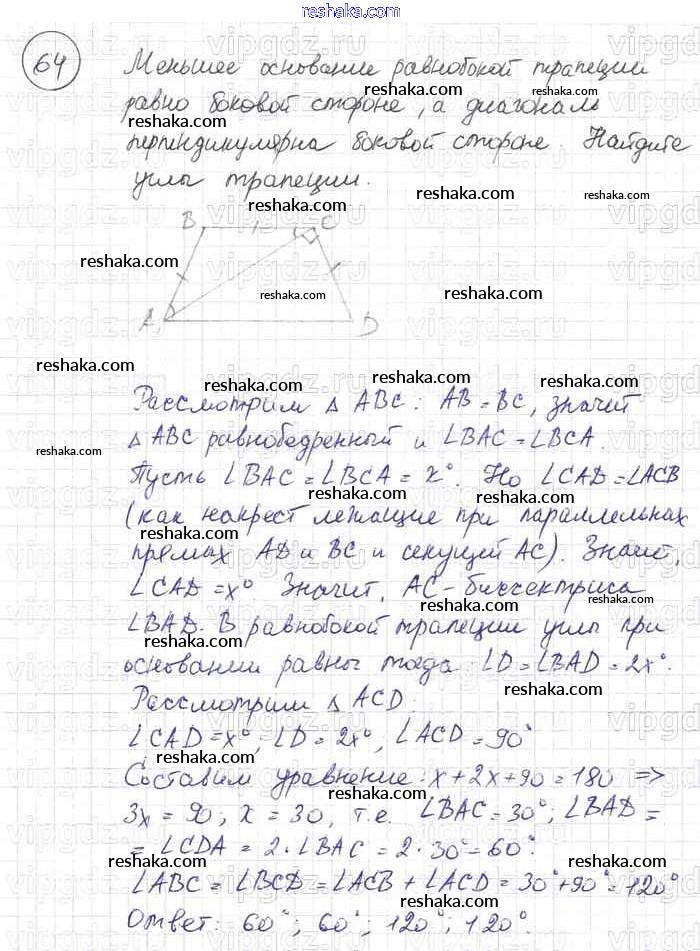 reshaka.com
64
Меньшее основание равнобокой трапеции
равно боковой стороне, а диагональ
перпендикулярна боковой стороне. Найдите
углы трапеции.
B C
A D
Рассмотрим △ ABC: AB = BC, значит
△ ABC равнобедренный и ∠BAC = ∠BCA.
Пусть ∠BAC = ∠BCA = x°. Но ∠CAD = ∠ACB
(как накрест лежащие при параллельных
прямых AD и BC и секущей AC). Значит,
∠CAD = x°. Значит, AC - биссектриса
∠BAD. В равнобокой трапеции углы при
основании равны тогда ∠D = ∠BAD = 2x°.
Рассмотрим △ ACD:
∠CAD = x°, ∠D = 2x°, ∠ACD = 90°
Составим уравнение: x + 2x + 90 = 180 =>
3x = 90; x = 30, т.е. ∠BAC = 30°; ∠BAD =
= ∠CDA = 2·∠BAC = 2·30° = 60°.
∠ABC = ∠BCD = ∠ACB + ∠ACD = 30° + 90° = 120°
Ответ: 60°; 60°; 120°; 120°.